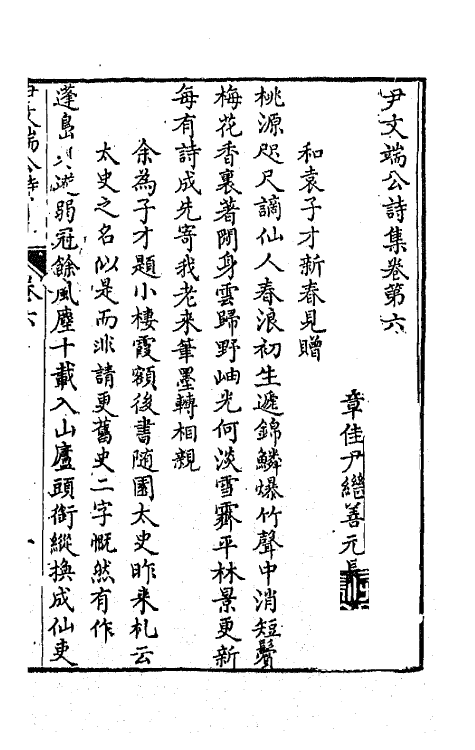 尹文端公詩集卷第六
章佳尹繼善元長
和袁子才新春見贈
桃源咫尺謫仙人春浪初生遞錦鱗爆竹聲中消短鬢
梅花香裏著閒身雲歸野岫光何淡雪霽平林景更新
每有詩成先寄我老來筆墨轉相親
余為子才題小棲霞額後書随園太史昨来札云
太史之名似是而非請更舊史二字慨然有作
蓬島 逰弱冠餘風塵十載入山廬頭銜縱換成仙吏
尹文端公詩 卷六